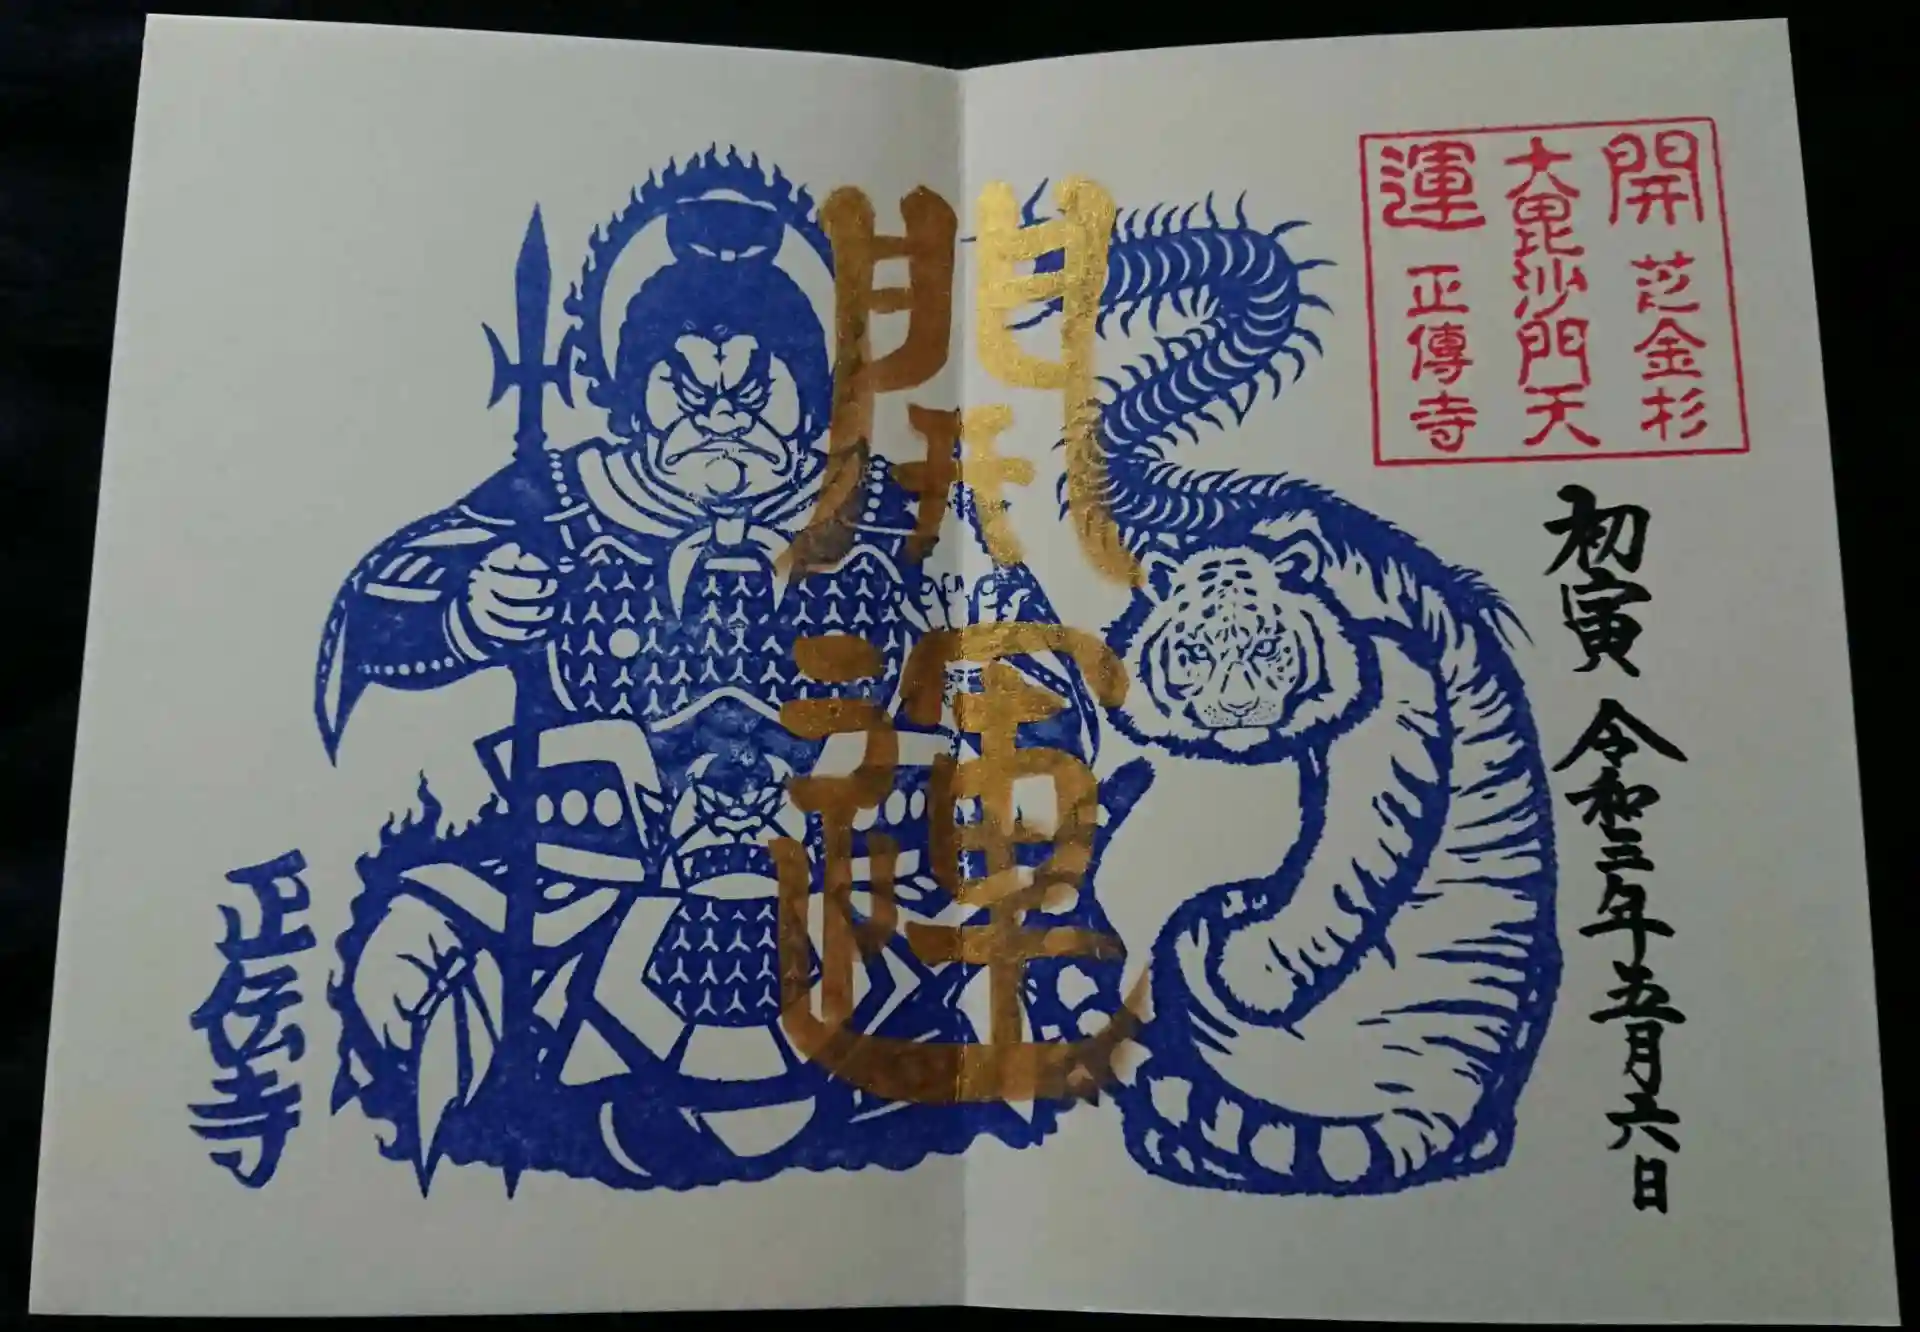 開 芝金杉
大毘沙門天
運 正傳寺
初寅 令和三年五月六日
開運
正伝寺